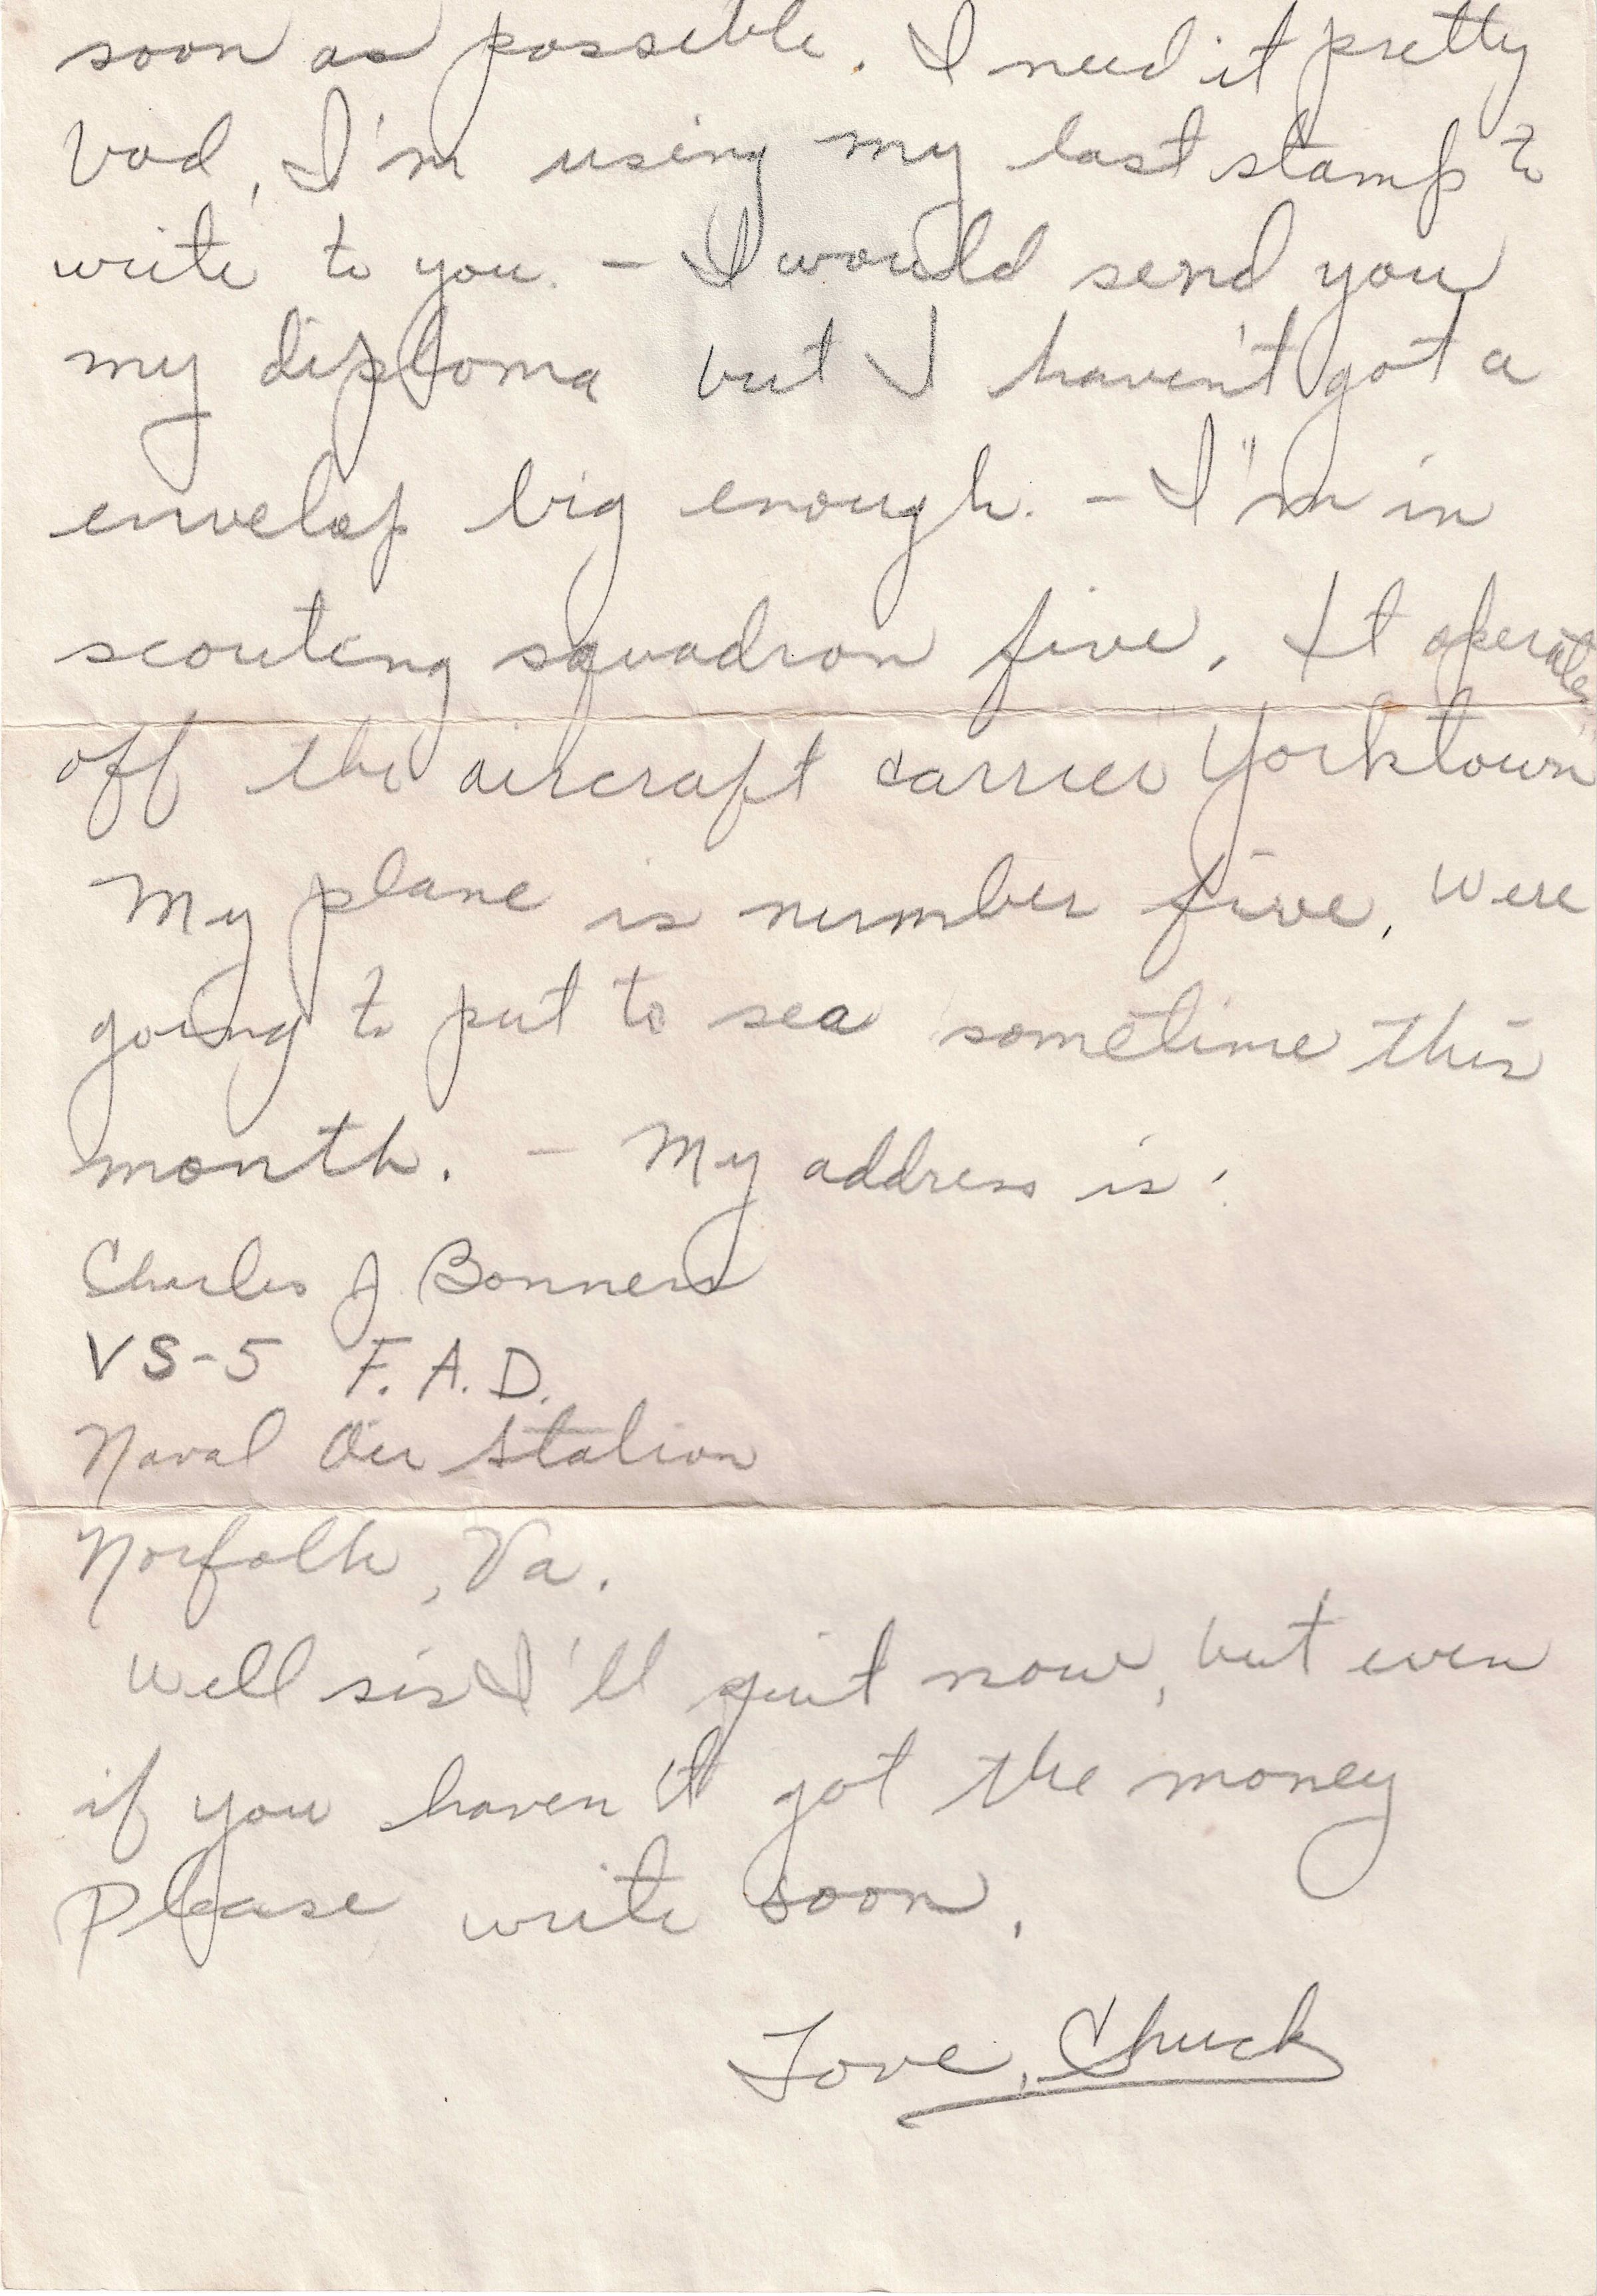 soon as possible. I need it pretty
bad, I'm using my last stamp to
write to you. - I would send you
my diploma but I haven't got a
envelop big enough. - I'm in
scouting squadron five. It operates
off the aircraft carrier "Yorktown"
My plane is number five. Were
going to put to sea sometime this
month. - My address is:
Charles J. Bonners
VS-5 F.A.D.
Naval Air Station
Norfolk, Va.
Well sis I'll quit now, but even
if you haven't got the money
Please write soon.
Love, Chuck